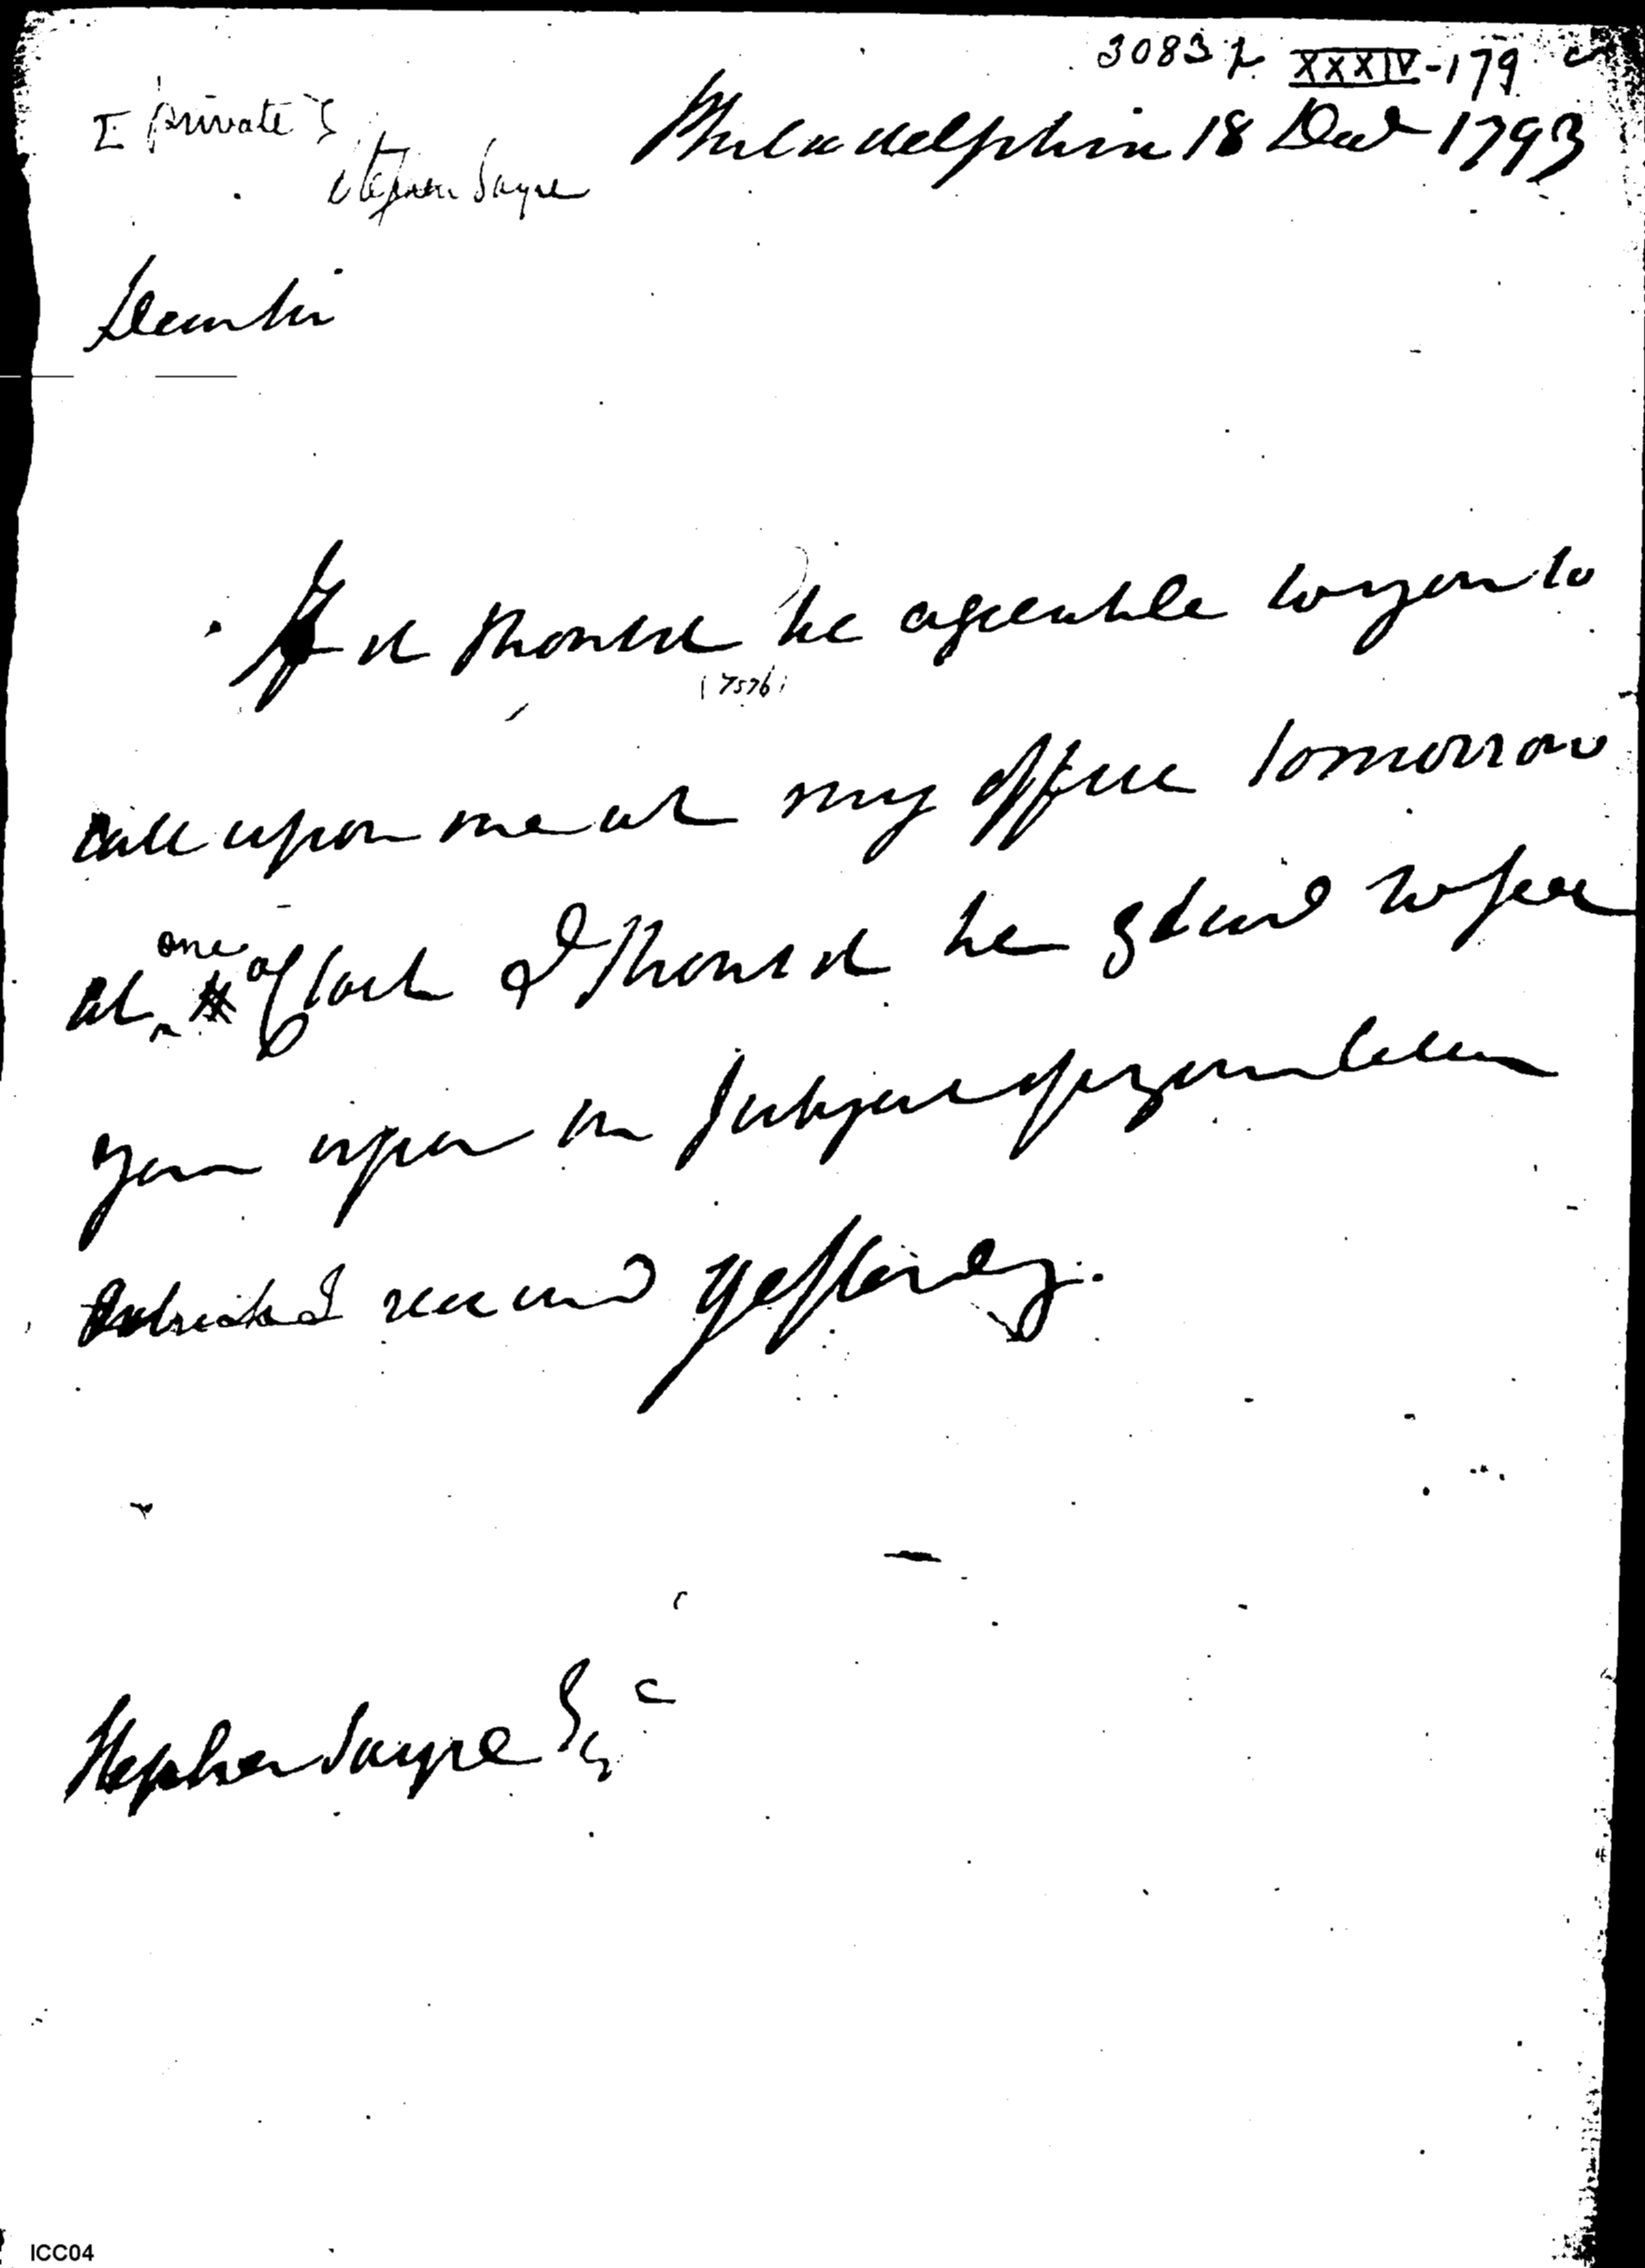 30837 XXXIV-179
[private]
Stephen Sayre
Philadelphia 18 Decr 1793
Dear Sir
If it should be agreeable to you to
(7576)
call upon me at my office tomorrow
at one oClock I should be glad to see
you upon the subject of your letter
which I received yesterday.
Stephen Sayre Esqr
ICC04